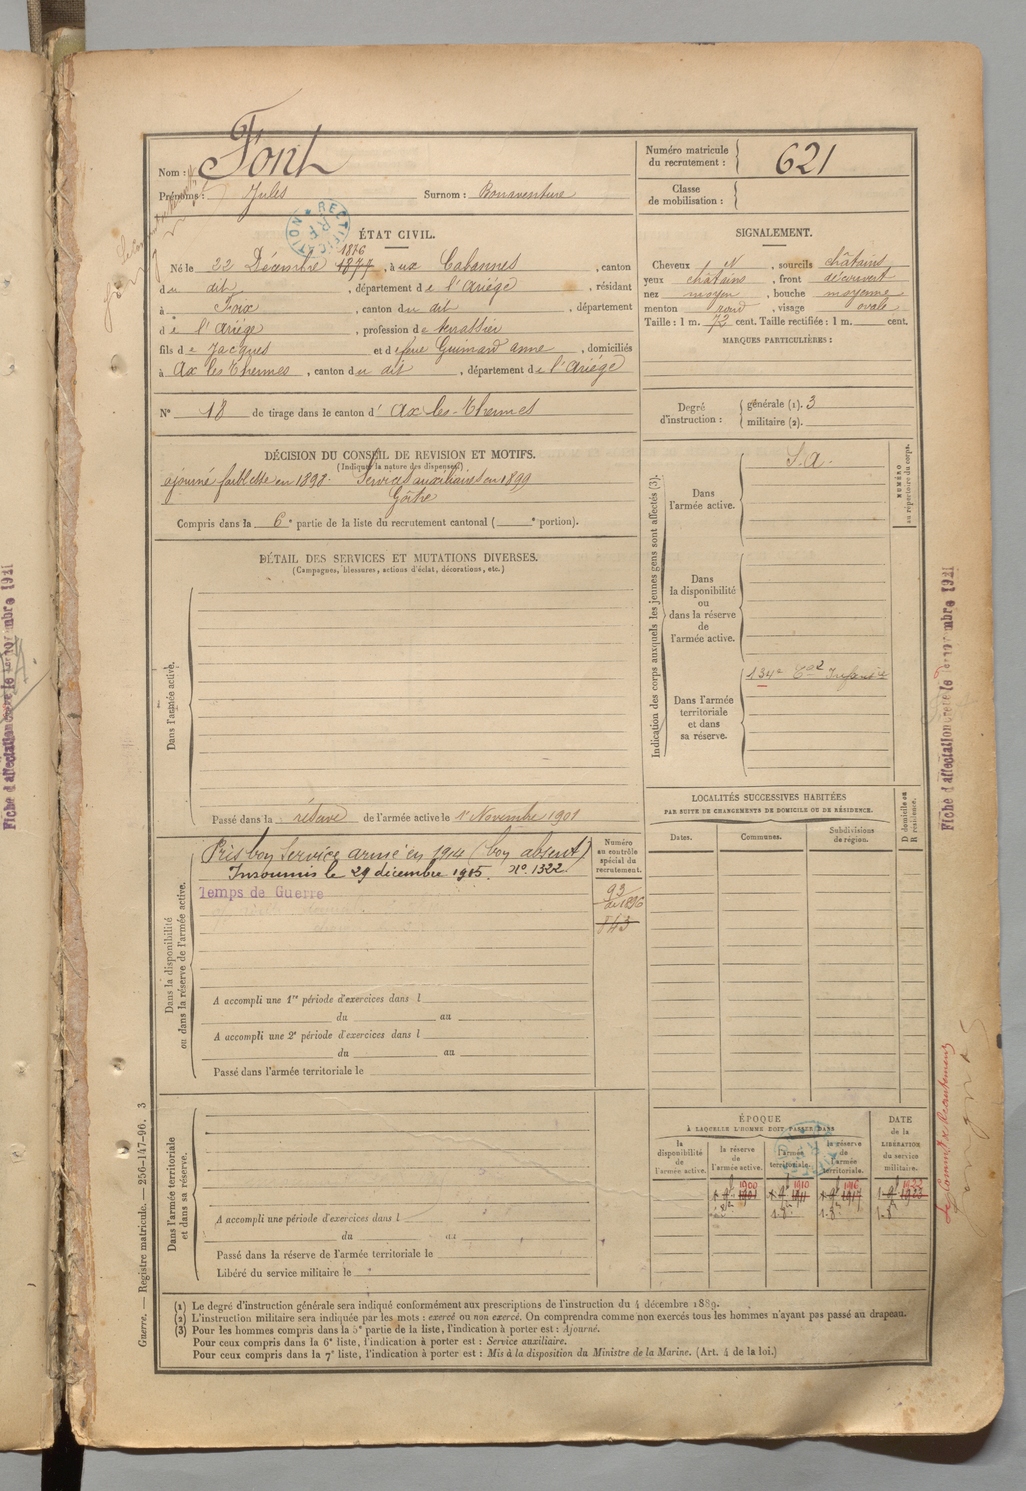 Nom : Font
Prénoms : Jules Surnom : Bonaventure
Numéro matricule du recrutement : 621
Classe de mobilisation :
RECTIFICATION RF
ÉTAT CIVIL.
1876
Né le 22 Décembre 1877, à ux Cabannes, canton
du dit, département de l'Ariège, résidant
à Foix, canton du dit, département
de l'Ariège, profession de terrassier
fils de Jacques et de feue Guimard anne, domiciliés
à Ax les Thermes, canton du dit, département de l'Ariège
N° 18 de tirage dans le canton d' Ax-les-Thermes
SIGNALEMENT.
Cheveux N, sourcils châtains
yeux châtains, front découvert
nez moyen, bouche moyenne
menton rond, visage ovale
Taille : 1 m. 72 cent. Taille rectifiée : 1 m. cent.
MARQUES PARTICULIÈRES :
Degré d'instruction : générale (1). 3
militaire (2).
DÉCISION DU CONSEIL DE REVISION ET MOTIFS.
(Indiquer la nature des dispenses).
ajourné faiblesse en 1898. Services auxiliaires en 1899
Goître
Compris dans la 6e partie de la liste du recrutement cantonal ( e portion).
DÉTAIL DES SERVICES ET MUTATIONS DIVERSES.
(Campagnes, blessures, actions d'éclat, décorations, etc.)
Dans l'armée active.
Passé dans la réserve de l'armée active le 1er Novembre 1901
Indication des corps auxquels les jeunes gens sont affectés (3).
NUMÉRO au répertoire du corps.
Dans l'armée active.
S.a.
Dans la disponibilité ou dans la réserve de l'armée active.
Dans l'armée territoriale et dans sa réserve.
134e Infanterie
LOCALITÉS SUCCESSIVES HABITÉES
PAR SUITE DE CHANGEMENTS DE DOMICILE OU DE RÉSIDENCE.
Dates. Communes. Subdivisions de région. D domicile ou R résidence.
Dans la disponibilité ou dans la réserve de l'armée active.
Pris bon Service armé en 1914 (bon absent)
Insoumis le 29 décembre 1915. No. 1322.
Temps de Guerre
Numéro au contrôle spécial du recrutement.
93
de 1896
843
A accompli une 1re période d'exercices dans l
du au
A accompli une 2e période d'exercices dans l
du au
Passé dans l'armée territoriale le
Dans l'armée territoriale et dans sa réserve.
A accompli une période d'exercices dans l
du au
Passé dans la réserve de l'armée territoriale le
Libéré du service militaire le
ÉPOQUE
À LAQUELLE L'HOMME DOIT PASSER DANS
la disponibilité de l'armée active.
la réserve de l'armée active.
l'armée territoriale.
la réserve de l'armée territoriale.
DATE de la LIBÉRATION du service militaire.
1900 1910 1916 1922
1901 1911 1917 1923
(1) Le degré d'instruction générale sera indiqué conformément aux prescriptions de l'instruction du 4 décembre 1889.
(2) L'instruction militaire sera indiquée par les mots : exercé ou non exercé. On comprendra comme non exercés tous les hommes n'ayant pas passé au drapeau.
(3) Pour les hommes compris dans la 5e partie de la liste, l'indication à porter est : Ajourné.
Pour ceux compris dans la 6e liste, l'indication à porter est : Service auxiliaire.
Pour ceux compris dans la 7e liste, l'indication à porter est : Mis à la disposition du Ministre de la Marine. (Art. 4 de la loi.)
Guerre. — Registre matricule. — 256-147-96. 3
Fiche d'affectation créée le 1er novembre 1921
Fiche d'affectation créée le 1er novembre 1921